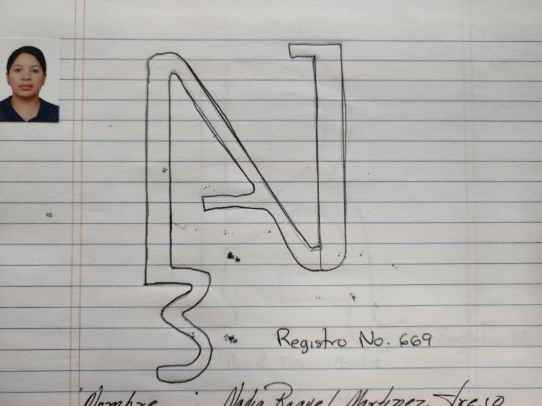 Registro No. 669
Nombre : Nadia Raquel Martinez